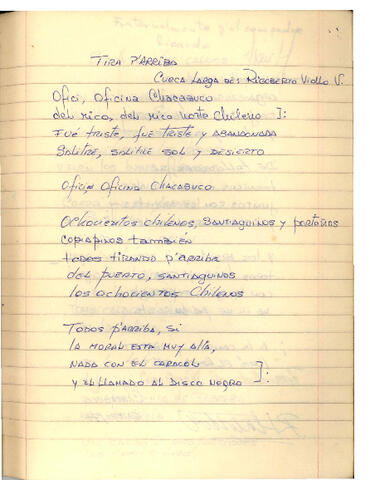 TIRA P'ARRIBA
CUECA LARGA DE: RIGOBERTO
OFICI, OFICINA CHACABUCO
del RICO, del RICO NORTE CHILENO ]:
FUÉ TRISTE, FUE TRISTE Y ABANDONADA
SALITRE, SALITRE SOL Y DESIERTO
OFICIN OFICINA CHACABUCO
OCHOCIENTOS CHILENOS, SANTIAGUINOS Y PORTEÑOS
COPIAPINOS TAMBIÉN
TODOS TIRANDO P'ARRIBA
DEL PUERTO, SANTIAGUINOS
LOS OCHOCIENTOS CHILENOS
TODOS P'ARRIBA, SI
LA MORAL ESTA MUY ALTA,
NADA CON EL CARACOL
Y EL LLAMADO AL DISCO NEGRO ]: